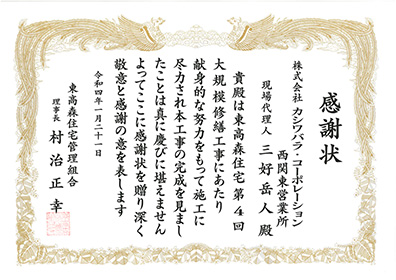 感謝状
株式会社 カシワバラ・コーポレーション
西関東営業所
現場代理人 三好岳人 殿
貴殿は東高森住宅第4回
大規模修繕工事にあたり
献身的な努力をもって施工に
尽力され本工事の完成を見まし
たことは真に慶びに堪えません
よってここに感謝状を贈り深く
敬意と感謝の意を表します
令和四年一月二十一日
東高森住宅管理組合
理事長 村治正幸